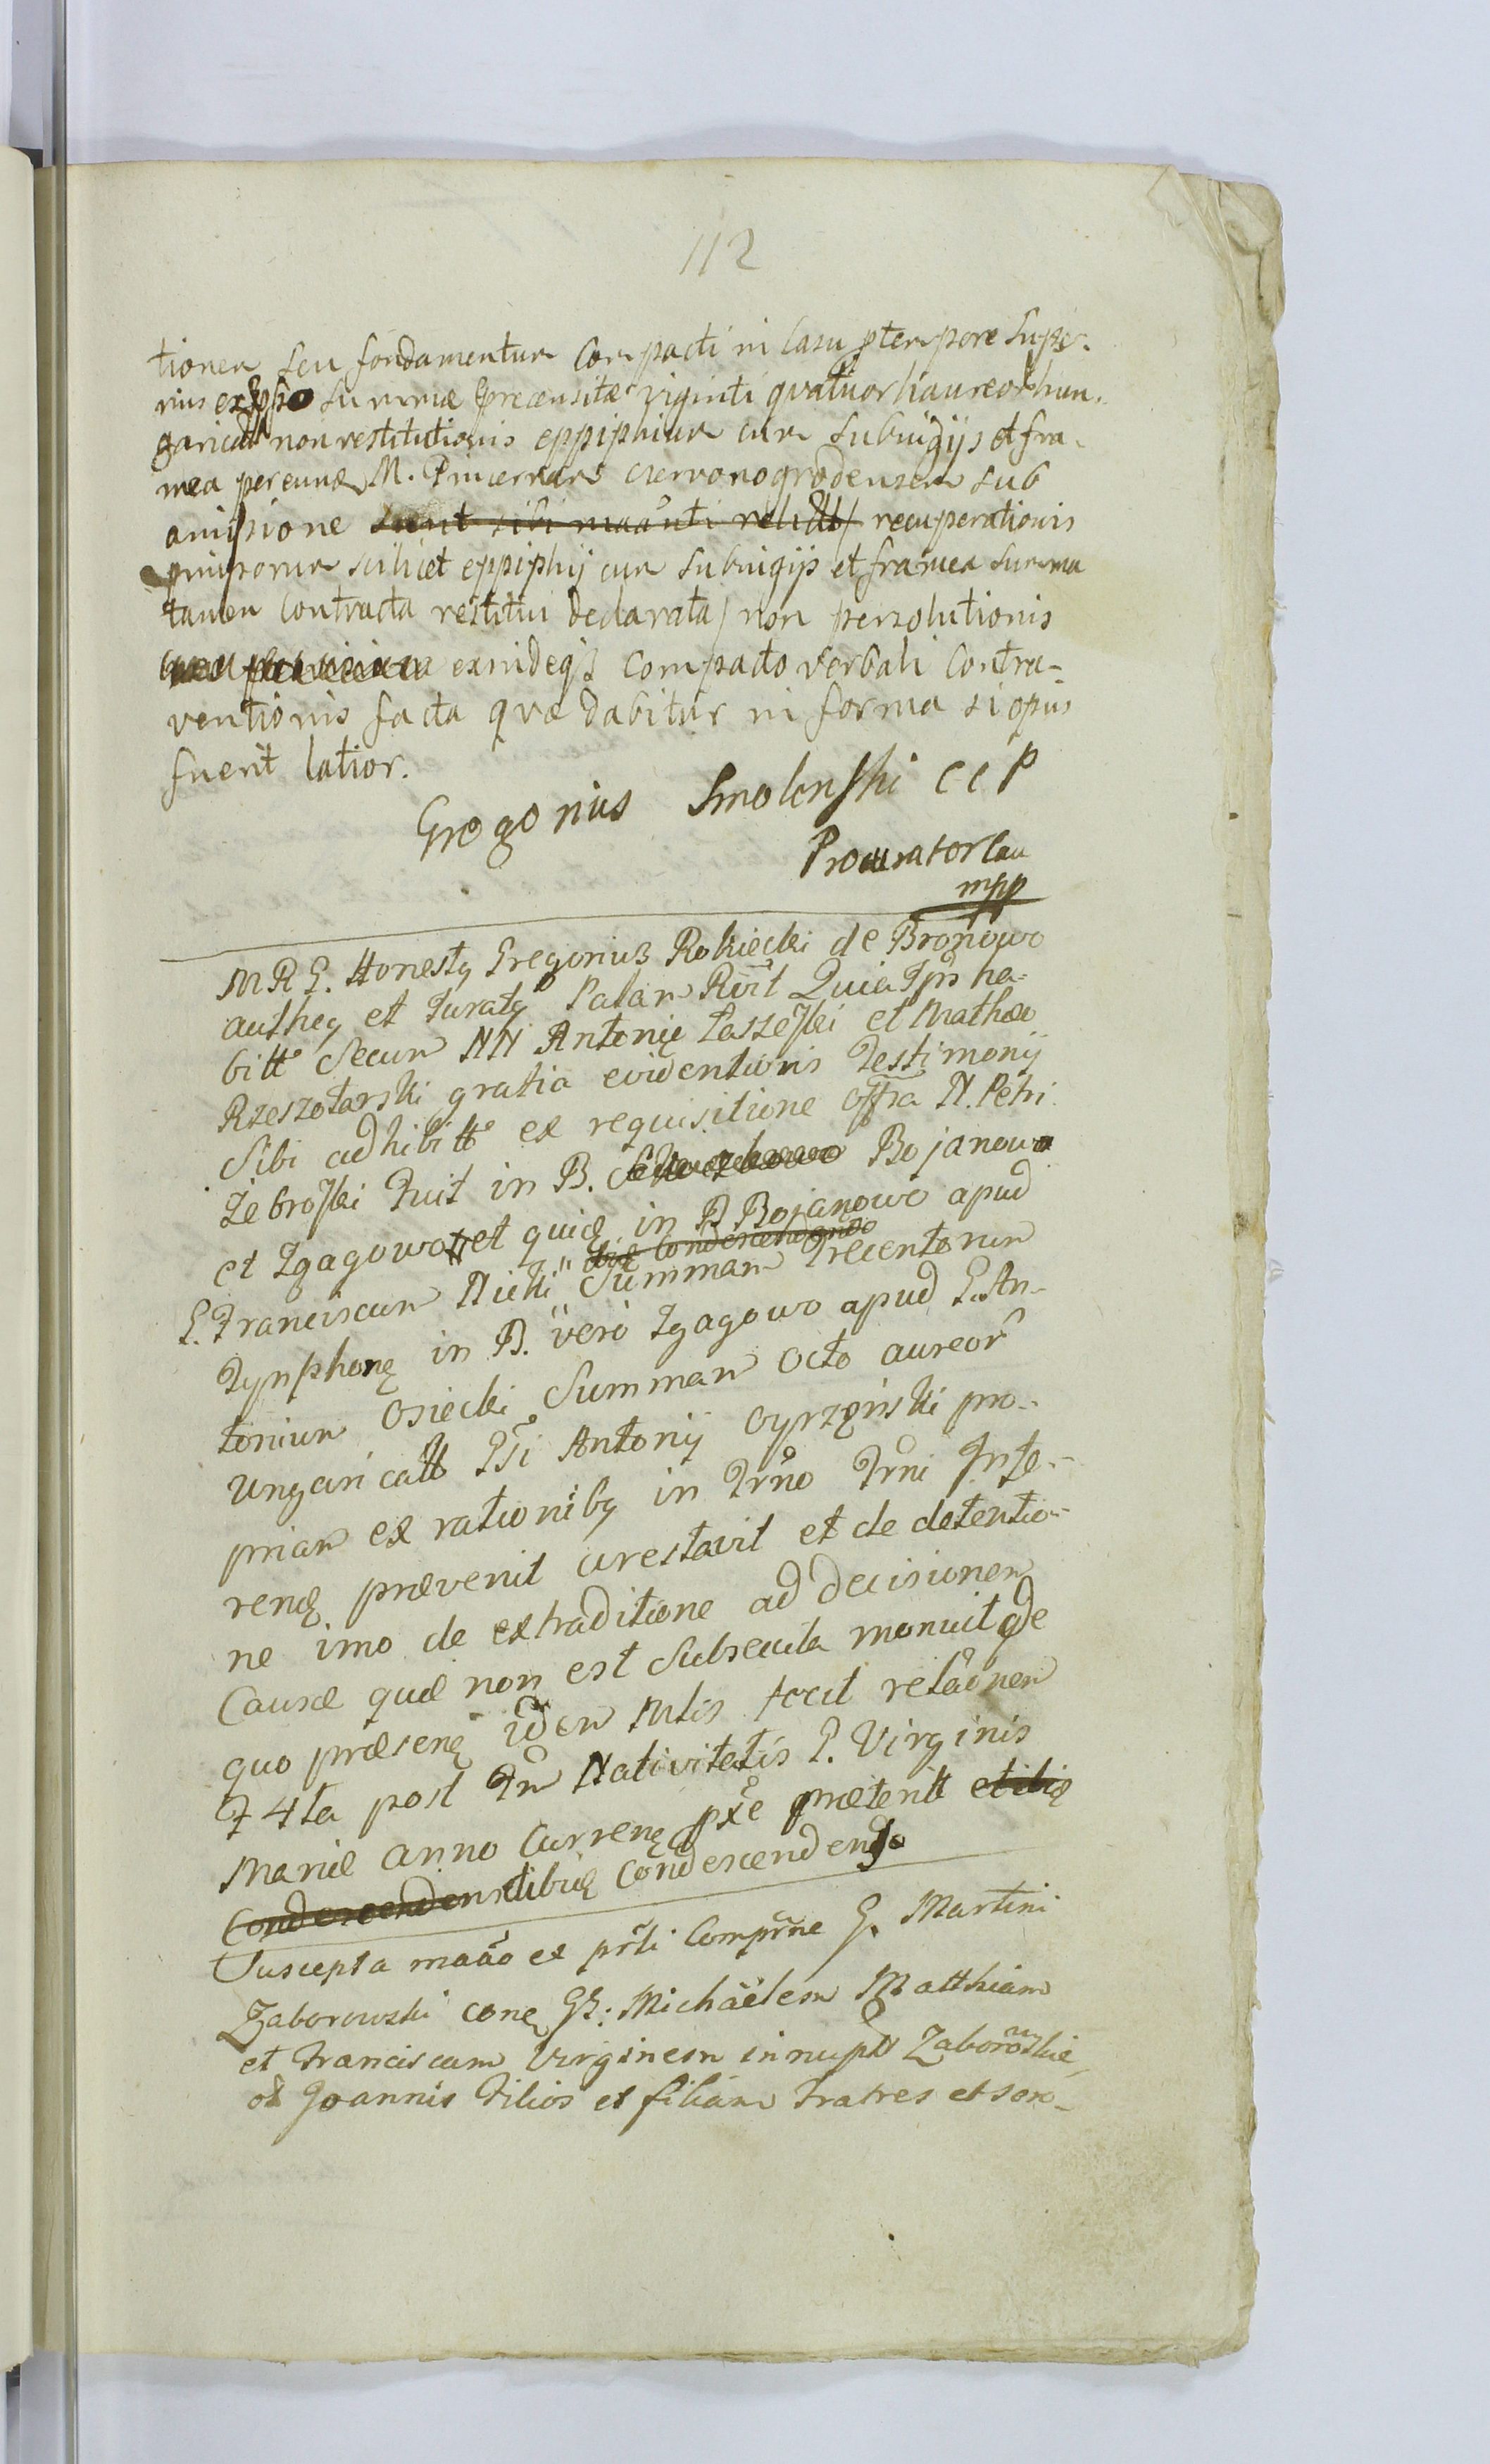 112
tionem seu fondamentum compacti in casu ptempore supe-
rius summæ precensitæ viginti qvatuor aureor hun-
garical non restitutionis eppiphium cum subuigijs et fra-
mea per eunde M. Pincernam czervonogrodensem sub
amissione sunt sibi recuperationis
pmissorum scilicet eppiphij cum subuigijs et framea summa
tamen contracta restitui declarata non persolutionis
exindeqz compacto verbali contra-
ventionis facta qvæ dabitur in forma si opus
fuerit latior.
Gregorius Smolenski CCP
Procurator Cau
mpp
M R G. Honestq Gregorius Rokiecki de Bronowo
autheq et Juratq Palam Roit Quia Ips ha-
bitt Secum NN Antonię Paszeski et Mathæo
Rzeszotarski gratia evidentioris Testimonij
Sibi adhibitt ex requisitione offra N. Petri
Zebroski Fuit in B. Bojanowo
et Zgagowo et quidę in B Bojanowo apud
ibiq Condescendendo
G. Franciscum Nicki Summam Trecentorum
Tynphonę in B. vero Zgagowo apud G. An-
tonium Osiecki Summam Octo aureor
Ungaricatt Antonij Cyprzęński pro-
priam ex rationibq in Trno Trni Infe-
renę prævenit arestavit et de detentio-
ne imo de extraditione ad decisionem
Causæ quæ non est Subsecuta monuit de
quo præsenę idem Mlis fecit relaonem
F 4ta post Fm Nativitatis B. Virginis
Mariæ anno Currenę pxe præteritt et ibię
Condescendens ibidę Condescendendo
Suscepta maao ex prti Comprne G. Martini
Zaborowski conę GG: Michäelem Matthiam
et Franciscam Virginem innupt Zaboroskie
ol Joannis Filios et filiam Fratres et soro-